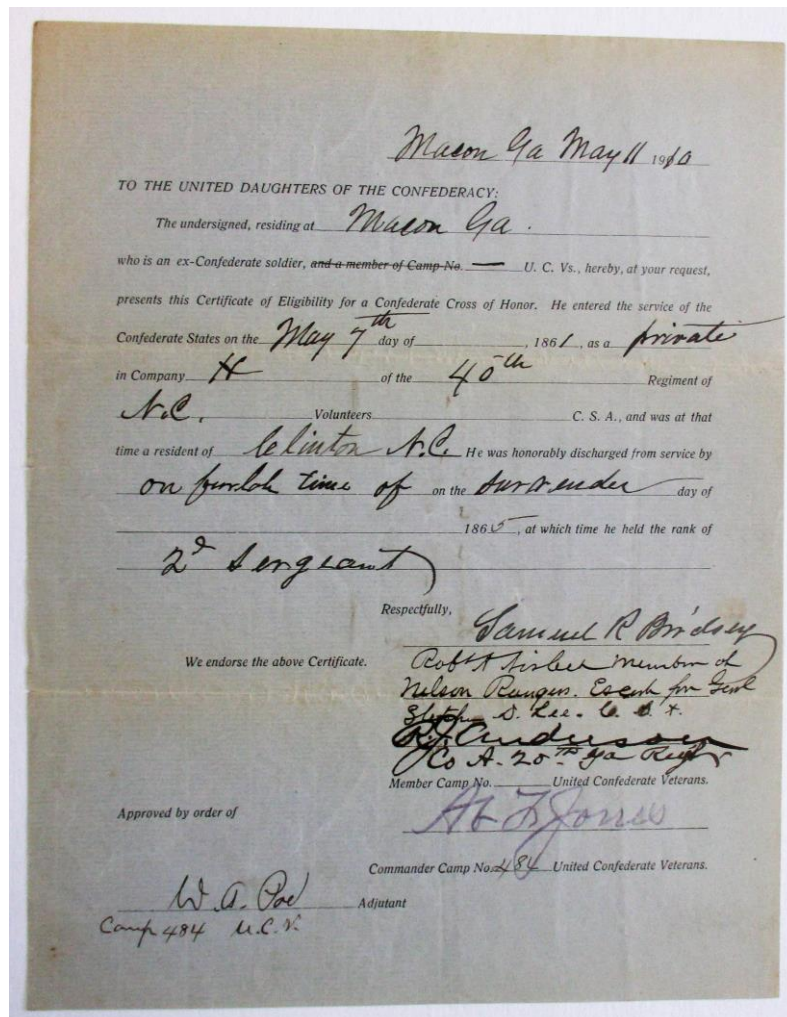 Macon Ga May 11 1910
TO THE UNITED DAUGHTERS OF THE CONFEDERACY:
The undersigned, residing at Macon Ga.
who is an ex-Confederate soldier, and a member of Camp No. — U. C. Vs., hereby, at your request,
presents this Certificate of Eligibility for a Confederate Cross of Honor. He entered the service of the
Confederate States on the May 7th day of , 1861, as a private
in Company H of the 40th Regiment of
N.C. Volunteers C. S. A., and was at that
time a resident of Clinton N.C. He was honorably discharged from service by
on furloh time of on the surrender day of
1865, at which time he held the rank of
2d Sergeant
Respectfully,
Samuel R Birdsey
We endorse the above Certificate.
Robt A member of
Nelson Rangers. Escort for Genl
Stephen D. Lee. C. S. A.
R.J. Anderson
Co A. 20TH Ga Regt
Member Camp No. United Confederate Veterans.
Approved by order of
Jones
Commander Camp No. 484 United Confederate Veterans.
W. A. Poe Adjutant
Camp 484 U.C.V.